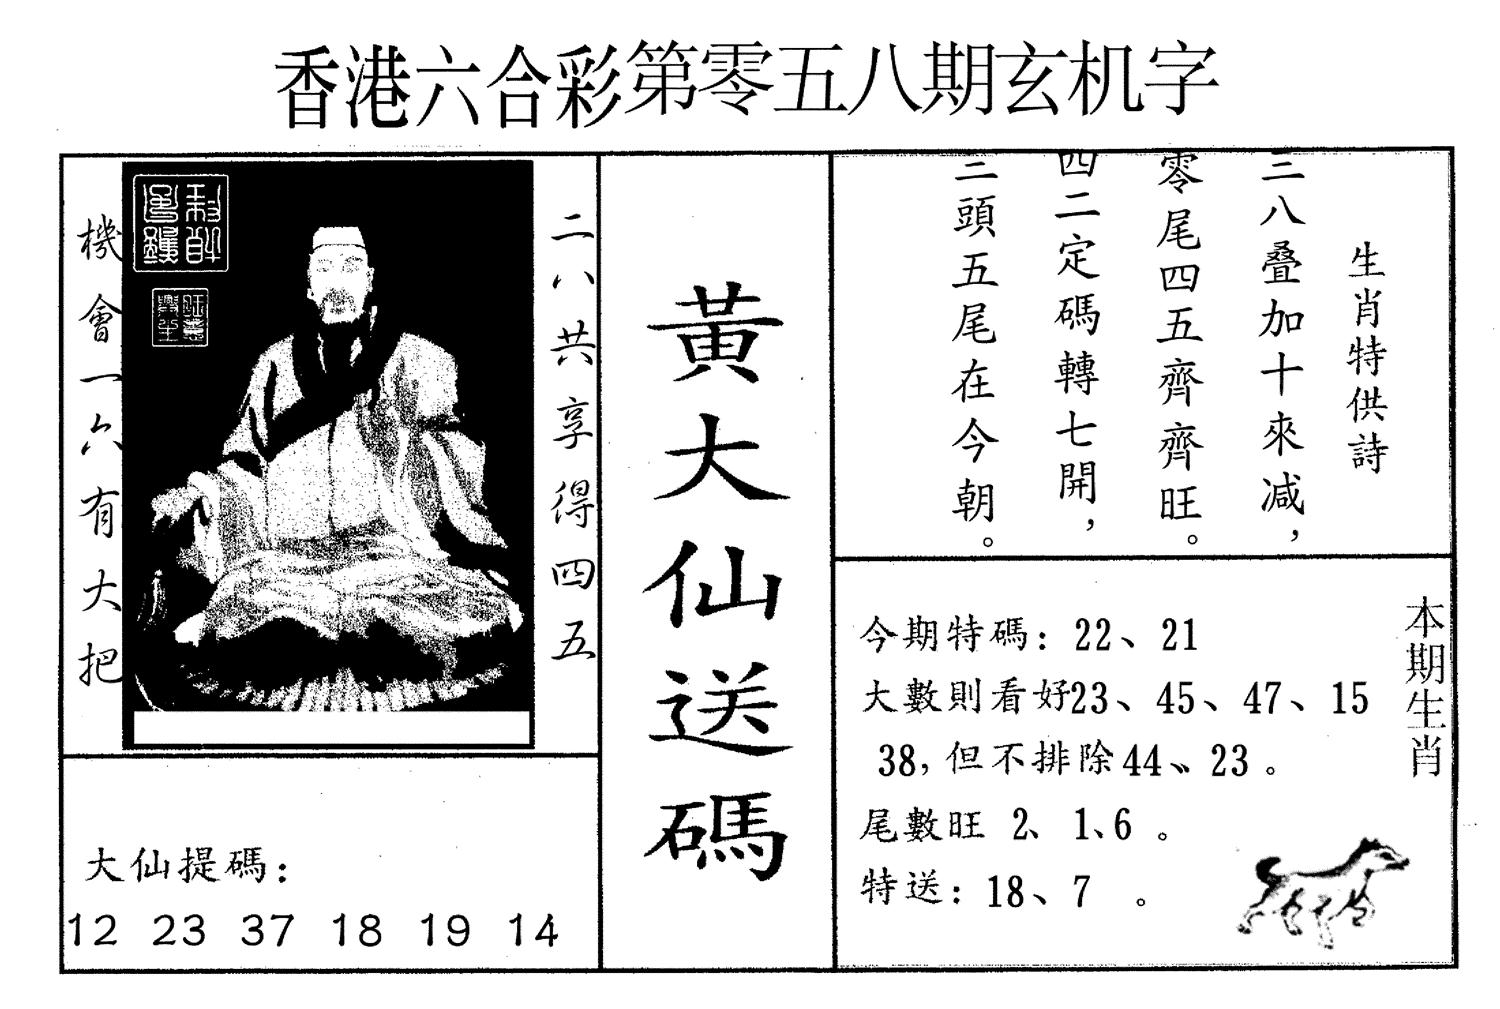 香港六合彩第零五八期玄机字
機會一六有大把
二八共享得四五
大仙提碼：
12 23 37 18 19 14
黃大仙送碼
生肖特供詩
三八叠加十來减，
零尾四五齊齊旺。
四二定碼轉七開，
三頭五尾在今朝。
本期生肖
今期特碼：22、21
大數則看好23、45、47、15
38，但不排除44、23。
尾數旺 2、1、6。
特送：18、7。